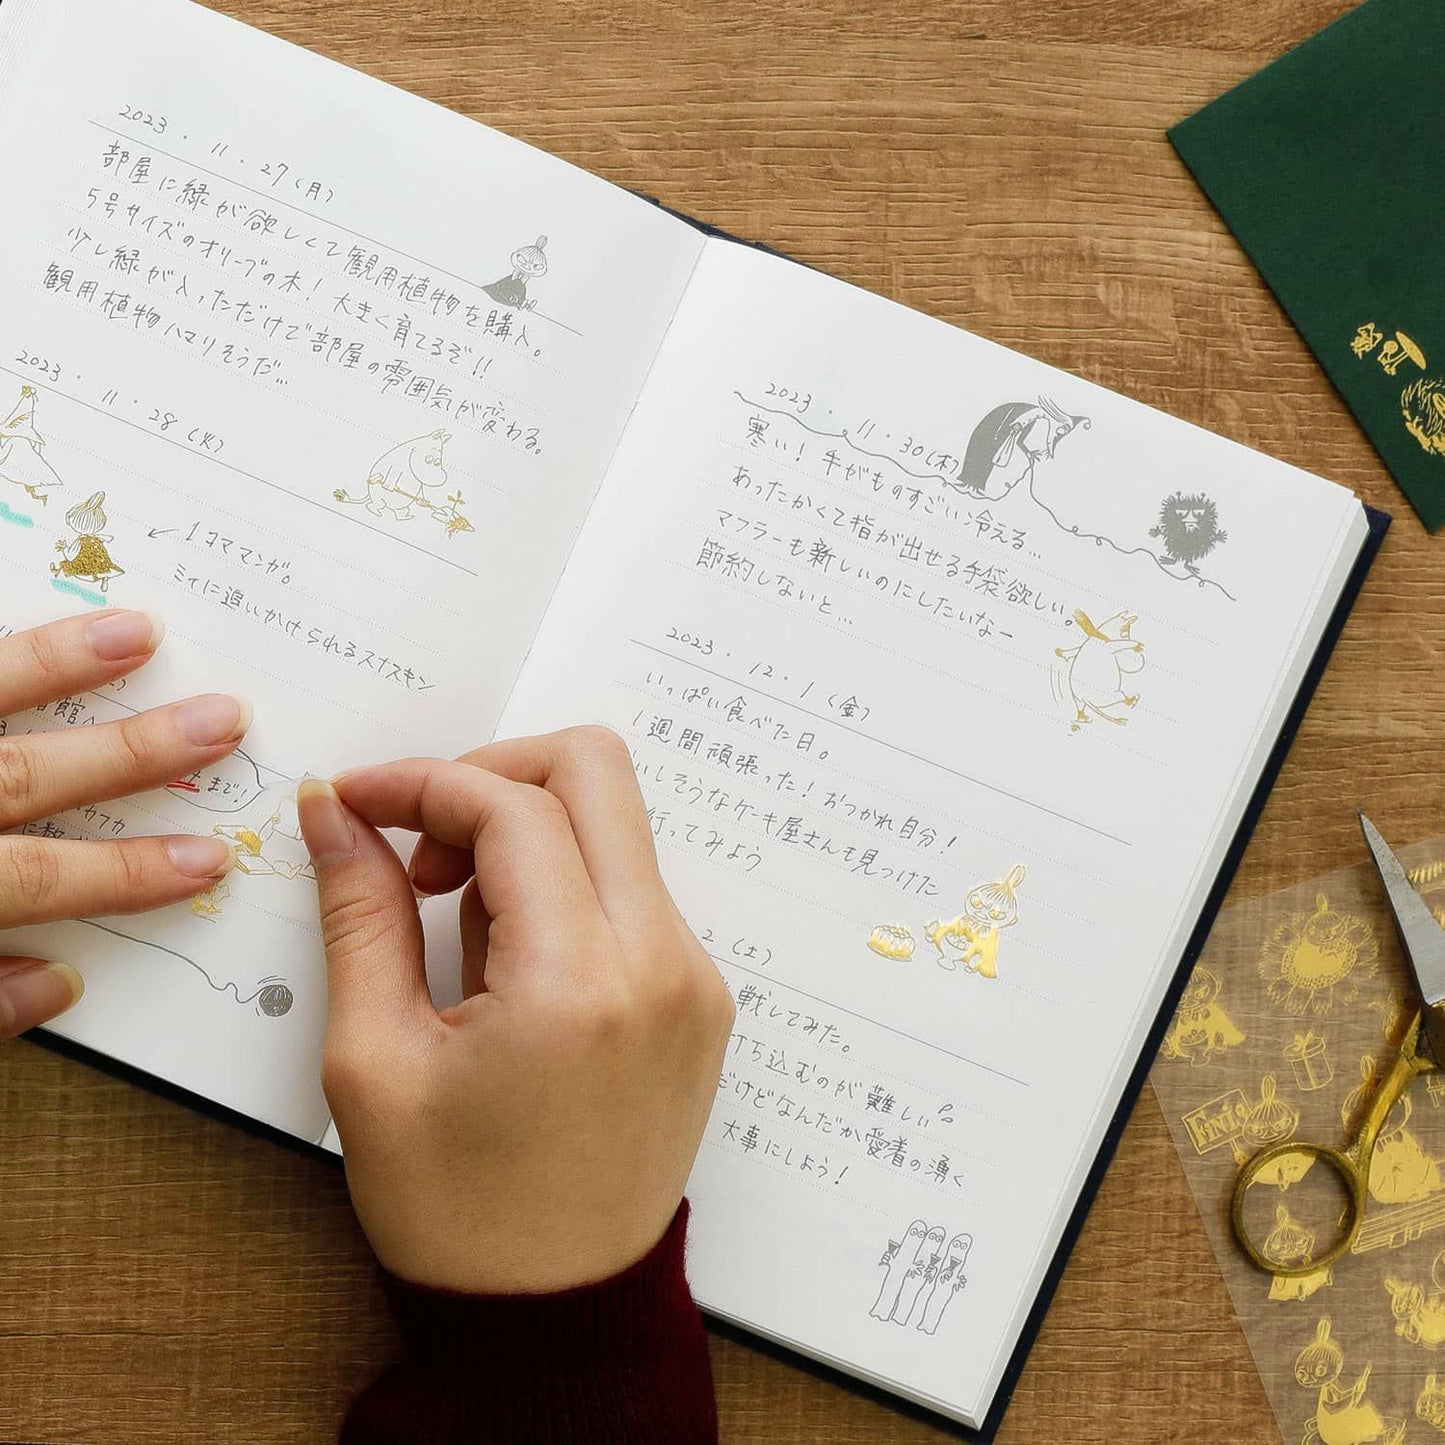 2023 . 11 . 27 (月)
部屋に緑が欲しくて観用植物を購入。
5号サイズのオリーブの木！大きく育てるぞ!!
少し緑が入っただけで部屋の雰囲気が変わる。
観用植物ハマりそうだ…
2023 . 11 . 28 (火)
↙ 1コママンガ。
ミイに追いかけられるスナスキン
館へ
土まで！
カフカ
2023 . 11 . 30 (木)
寒い！手がものすごい冷える…
あったかくて指が出せる手袋欲しい。
マフラーも新しいのにしたいなー
節約しないと…
2023 . 12 . 1 (金)
いっぱい食べた日。
1週間頑張った！おつかれ自分！
いしそうなケーキ屋さんも見つけた
行ってみよう
2 (土)
戦してみた。
打ち込むのが難しい
だけどなんだか愛着の湧く
大事にしよう！